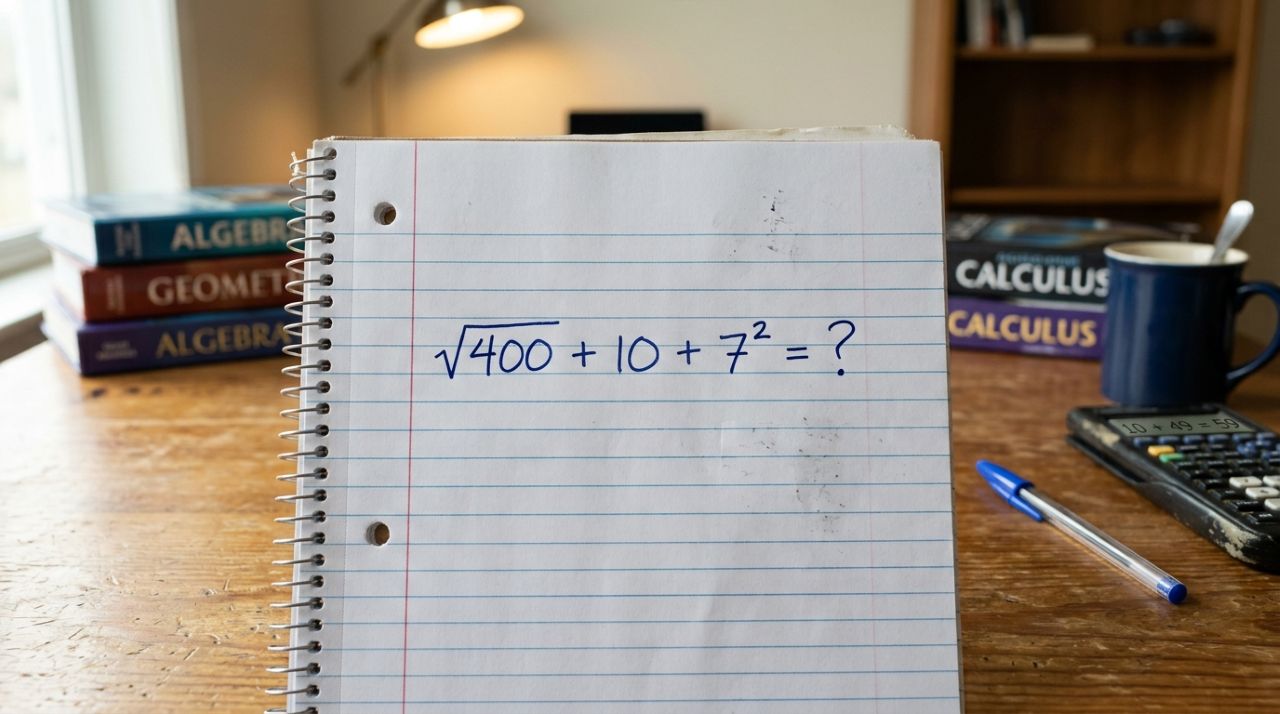 ALGEBRA
GEOMET
ALGEBRA
√400 + 10 + 7² = ?
CALCULUS
CALCULUS
10 + 49 = 59